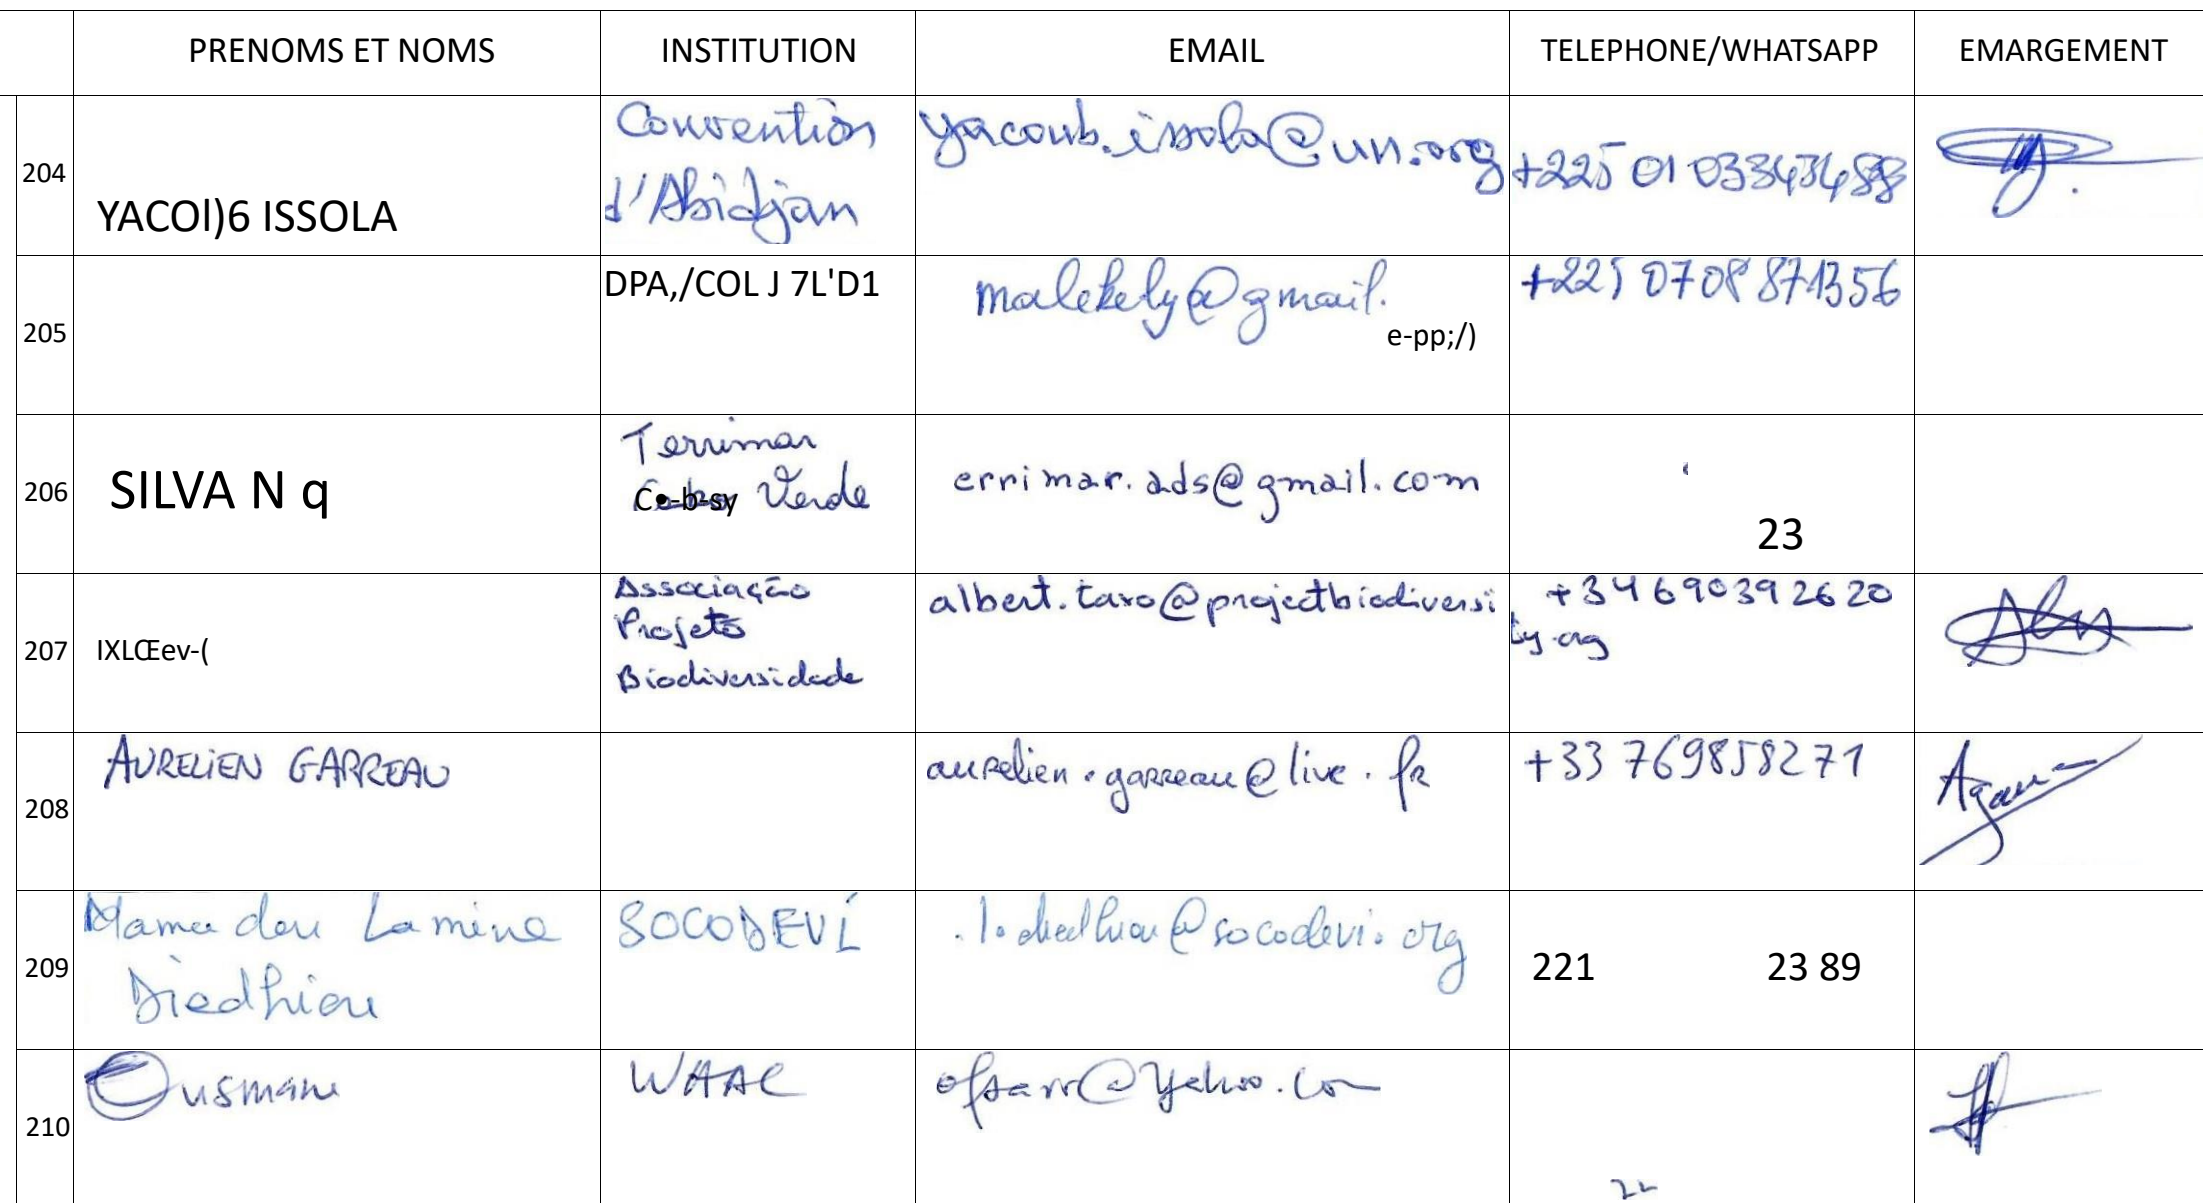 PRENOMS ET NOMS INSTITUTION EMAIL TELEPHONE/WHATSAPP EMARGEMENT
204 YACOl)6 ISSOLA Convention d'Abidjan yacoub.issola@un.org +225 01 03343488
205 DPA,/COL J 7L'D1 malekely@gmail. e-pp;/) +225 0708 871356
206 SILVA N q Terrimar Verde C•-b-sy errimar.ads@gmail.com 23
207 IXLŒev-( Associação Projeto Biodiversidade albert.taxo@projectbiodiversi ty.org +34 690392620
208 AURELIEN GARREAU aurelien.garreau@live.fr +33 769858271
209 Mamadou Lamine Diedhiou SOCODEVI .l.diedhiou@socodevi.org 221 23 89
210 Ousmane WAAC ofsarr@yahoo.co 22